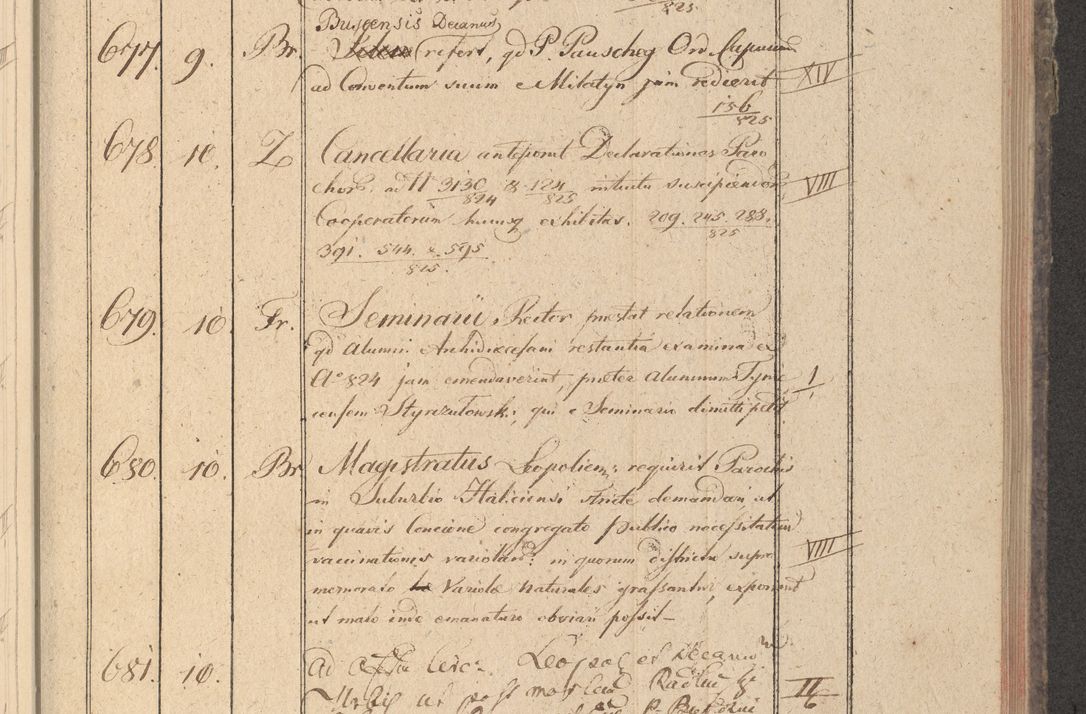 825
Buscensis Decanus
677. 9. Br. refert, qd P. Pauscheg Ord. Capucin
ad Conventum suum e Milatyn jam redierit XIV
156
825
678 10. Z Cancellaria anteponit Declarationes Paro
chor. ad N 3130/824 & 124/825 intuitu suscipiendor VIII
Cooperatorum hucusq exhibitas. 209. 245. 288.
825
391. 544. & 595.
825.
679. 10. Fr. Seminarii Rector praestat relationem
qd Alumni Archidioecesani restantia examina ex
Ao 824 jam emendaverint, praeter alumnum Tyme I
censem Styrzulowski, qui e Seminario dimitti petit
680. 10. Br Magistratus Leopoliens: requirit Parochis
in Suburbio Haliciensi stricte demandari ut
in quavis Concione congregato publico necessitatem
vaccinationis variolar: in quorum districtu supra VIII
memorato Variolae naturales grassantur, exponant
ut malo inde emanaturo obviari possit
681. 10. Ad Leopol et Decanor
II